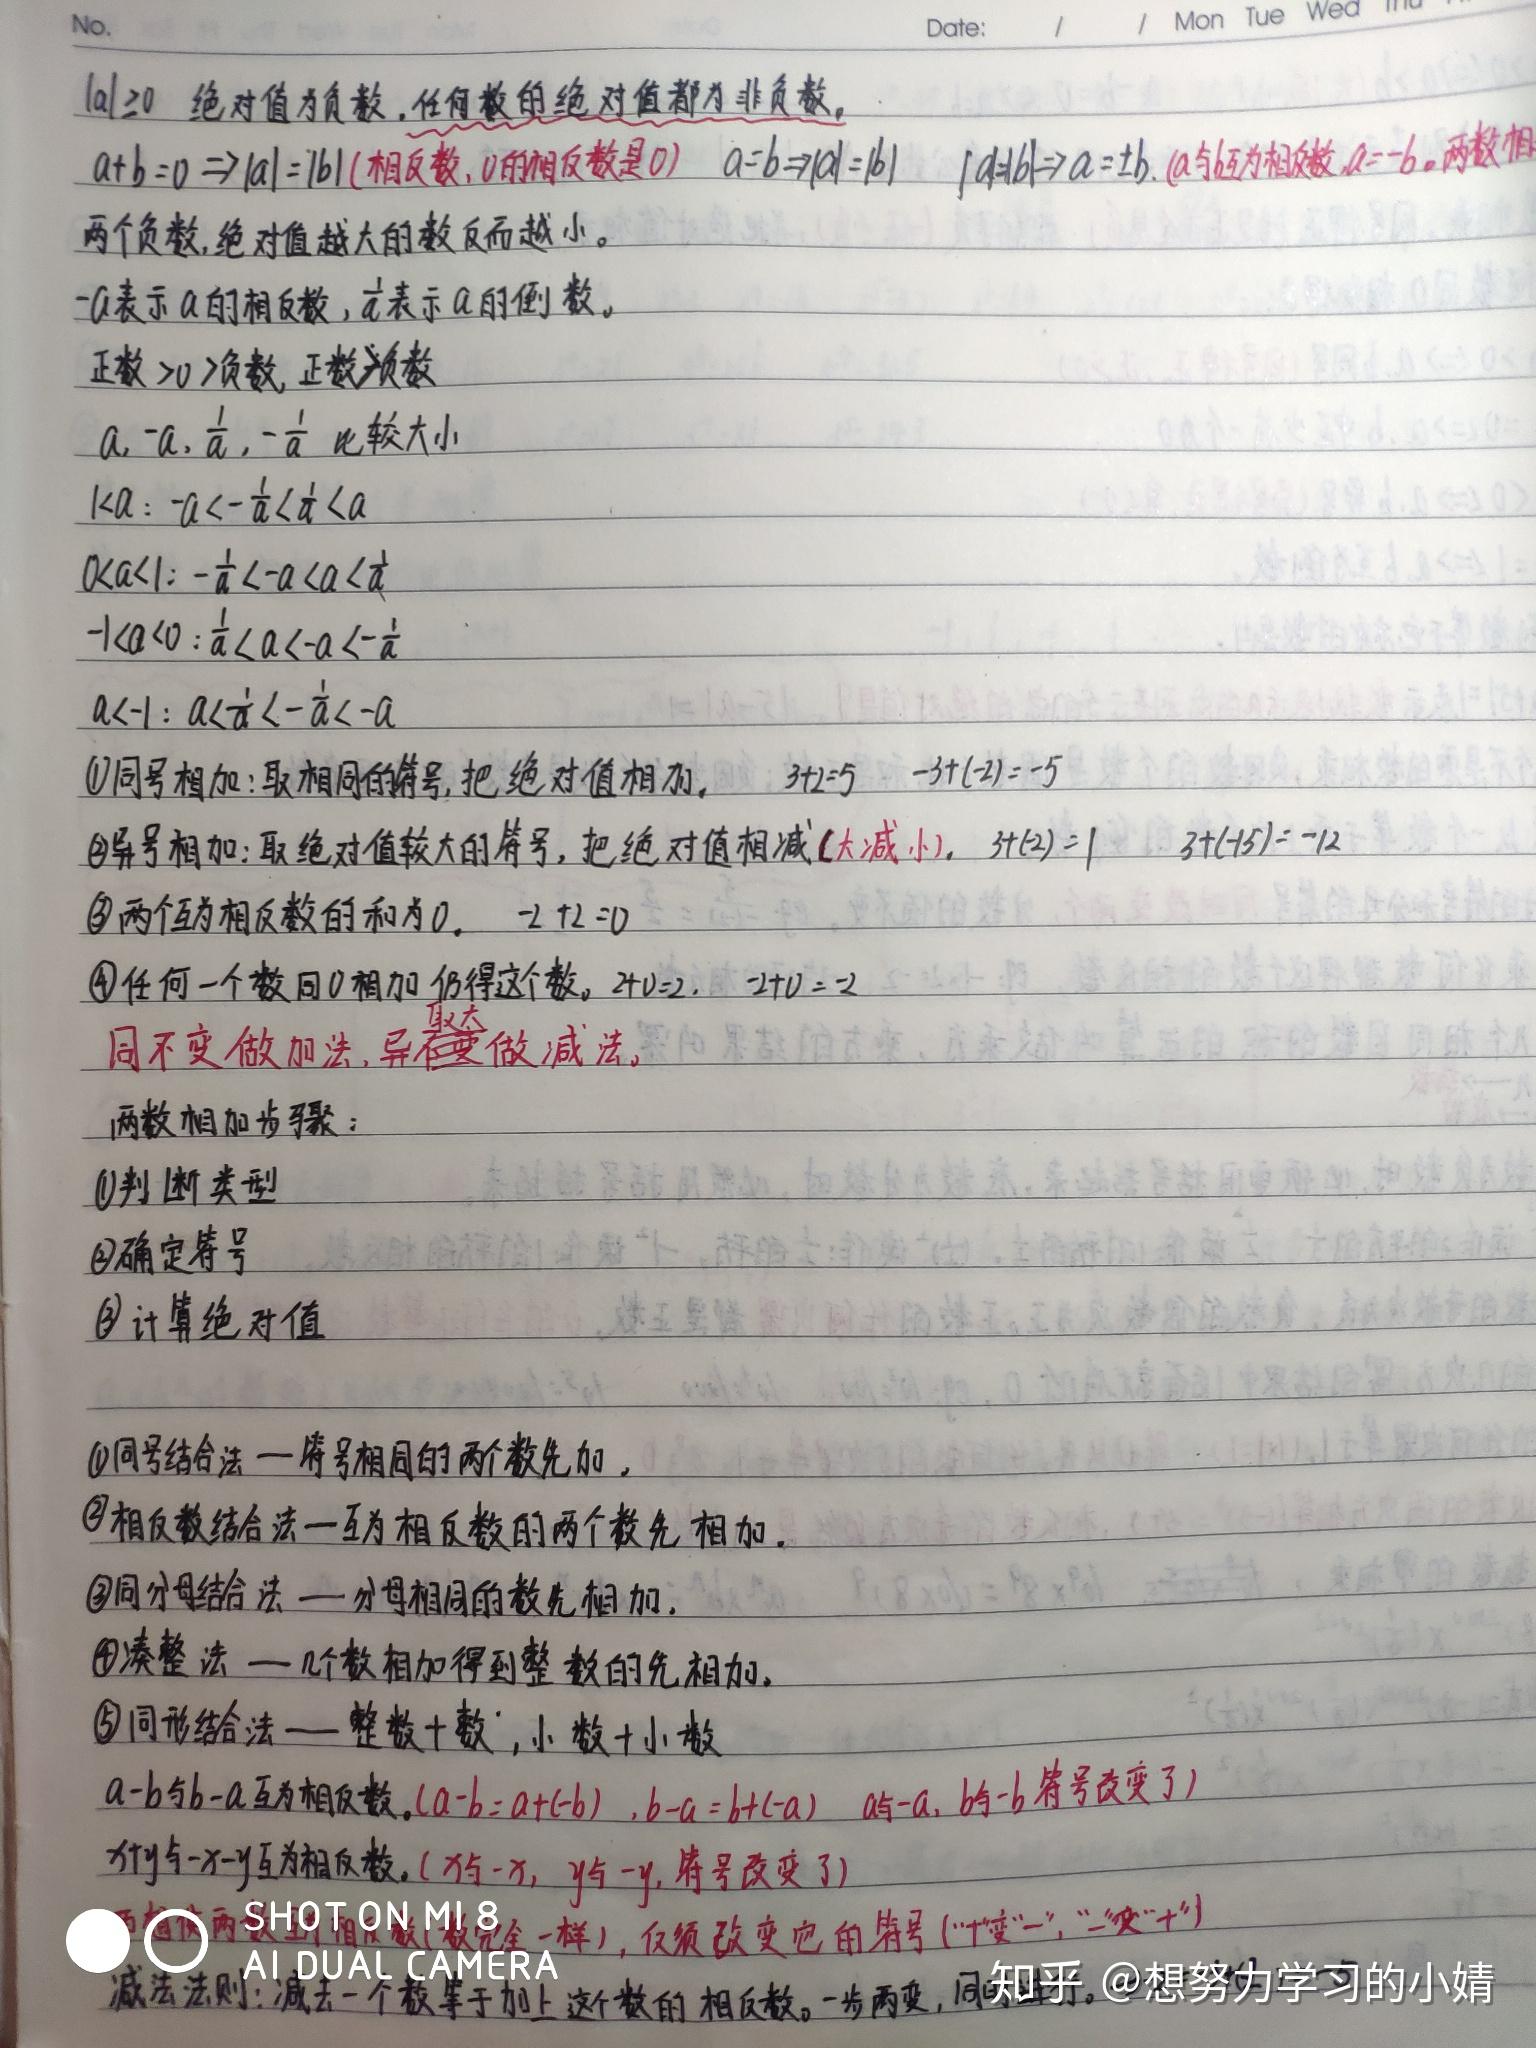 No. Date: / / Mon Tue Wed Thu
|a|≥0 绝对值为负数,任何数的绝对值都为非负数。
a+b=0⇒|a|=|b|(相反数,0的相反数是0) a=b⇒|a|=|b| |a|=|b|⇒a=±b.(a与b互为相反数,a=-b。两数相
两个负数,绝对值越大的数反而越小。
-a表示a的相反数,1/a表示a的倒数。
正数>0>负数,正数>负数
a,-a,1/a,-1/a 比较大小
1<a:-a<-1/a<1/a<a
0<a<1:-1/a<-a<a<1/a
-1<a<0:1/a<a<-a<-1/a
a<-1:a<1/a<-1/a<-a
①同号相加:取相同的符号,把绝对值相加. 3+2=5 -3+(-2)=-5
②异号相加:取绝对值较大的符号,把绝对值相减(大减小). 3+(-2)=1 3+(-15)=-12
③两个互为相反数的和为0. -2+2=0
④任何一个数同0相加仍得这个数。2+0=2. -2+0=-2
取大
同不变做加法,异不变做减法。
两数相加步骤:
①判断类型
②确定符号
③计算绝对值
①同号结合法—符号相同的两个数先加.
②相反数结合法—互为相反数的两个数先相加.
③同分母结合法—分母相同的数先相加.
④凑整法—几个数相加得到整数的先相加。
⑤同形结合法—整数+数,小数+小数
a-b与b-a互为相反数.(a-b=a+(-b),b-a=b+(-a) a与-a,b与-b符号改变了)
x+y与-x-y互为相反数.(x与-x,y与-y,符号改变了)
两数互为相反数(数完全一样),仅须改变它的符号("+"变"-","-"变"+")
减法法则:减去一个数等于加上这个数的相反数。一步两变,同时进行。
SHOT ON MI 8
AI DUAL CAMERA
知乎 @想努力学习的小婧